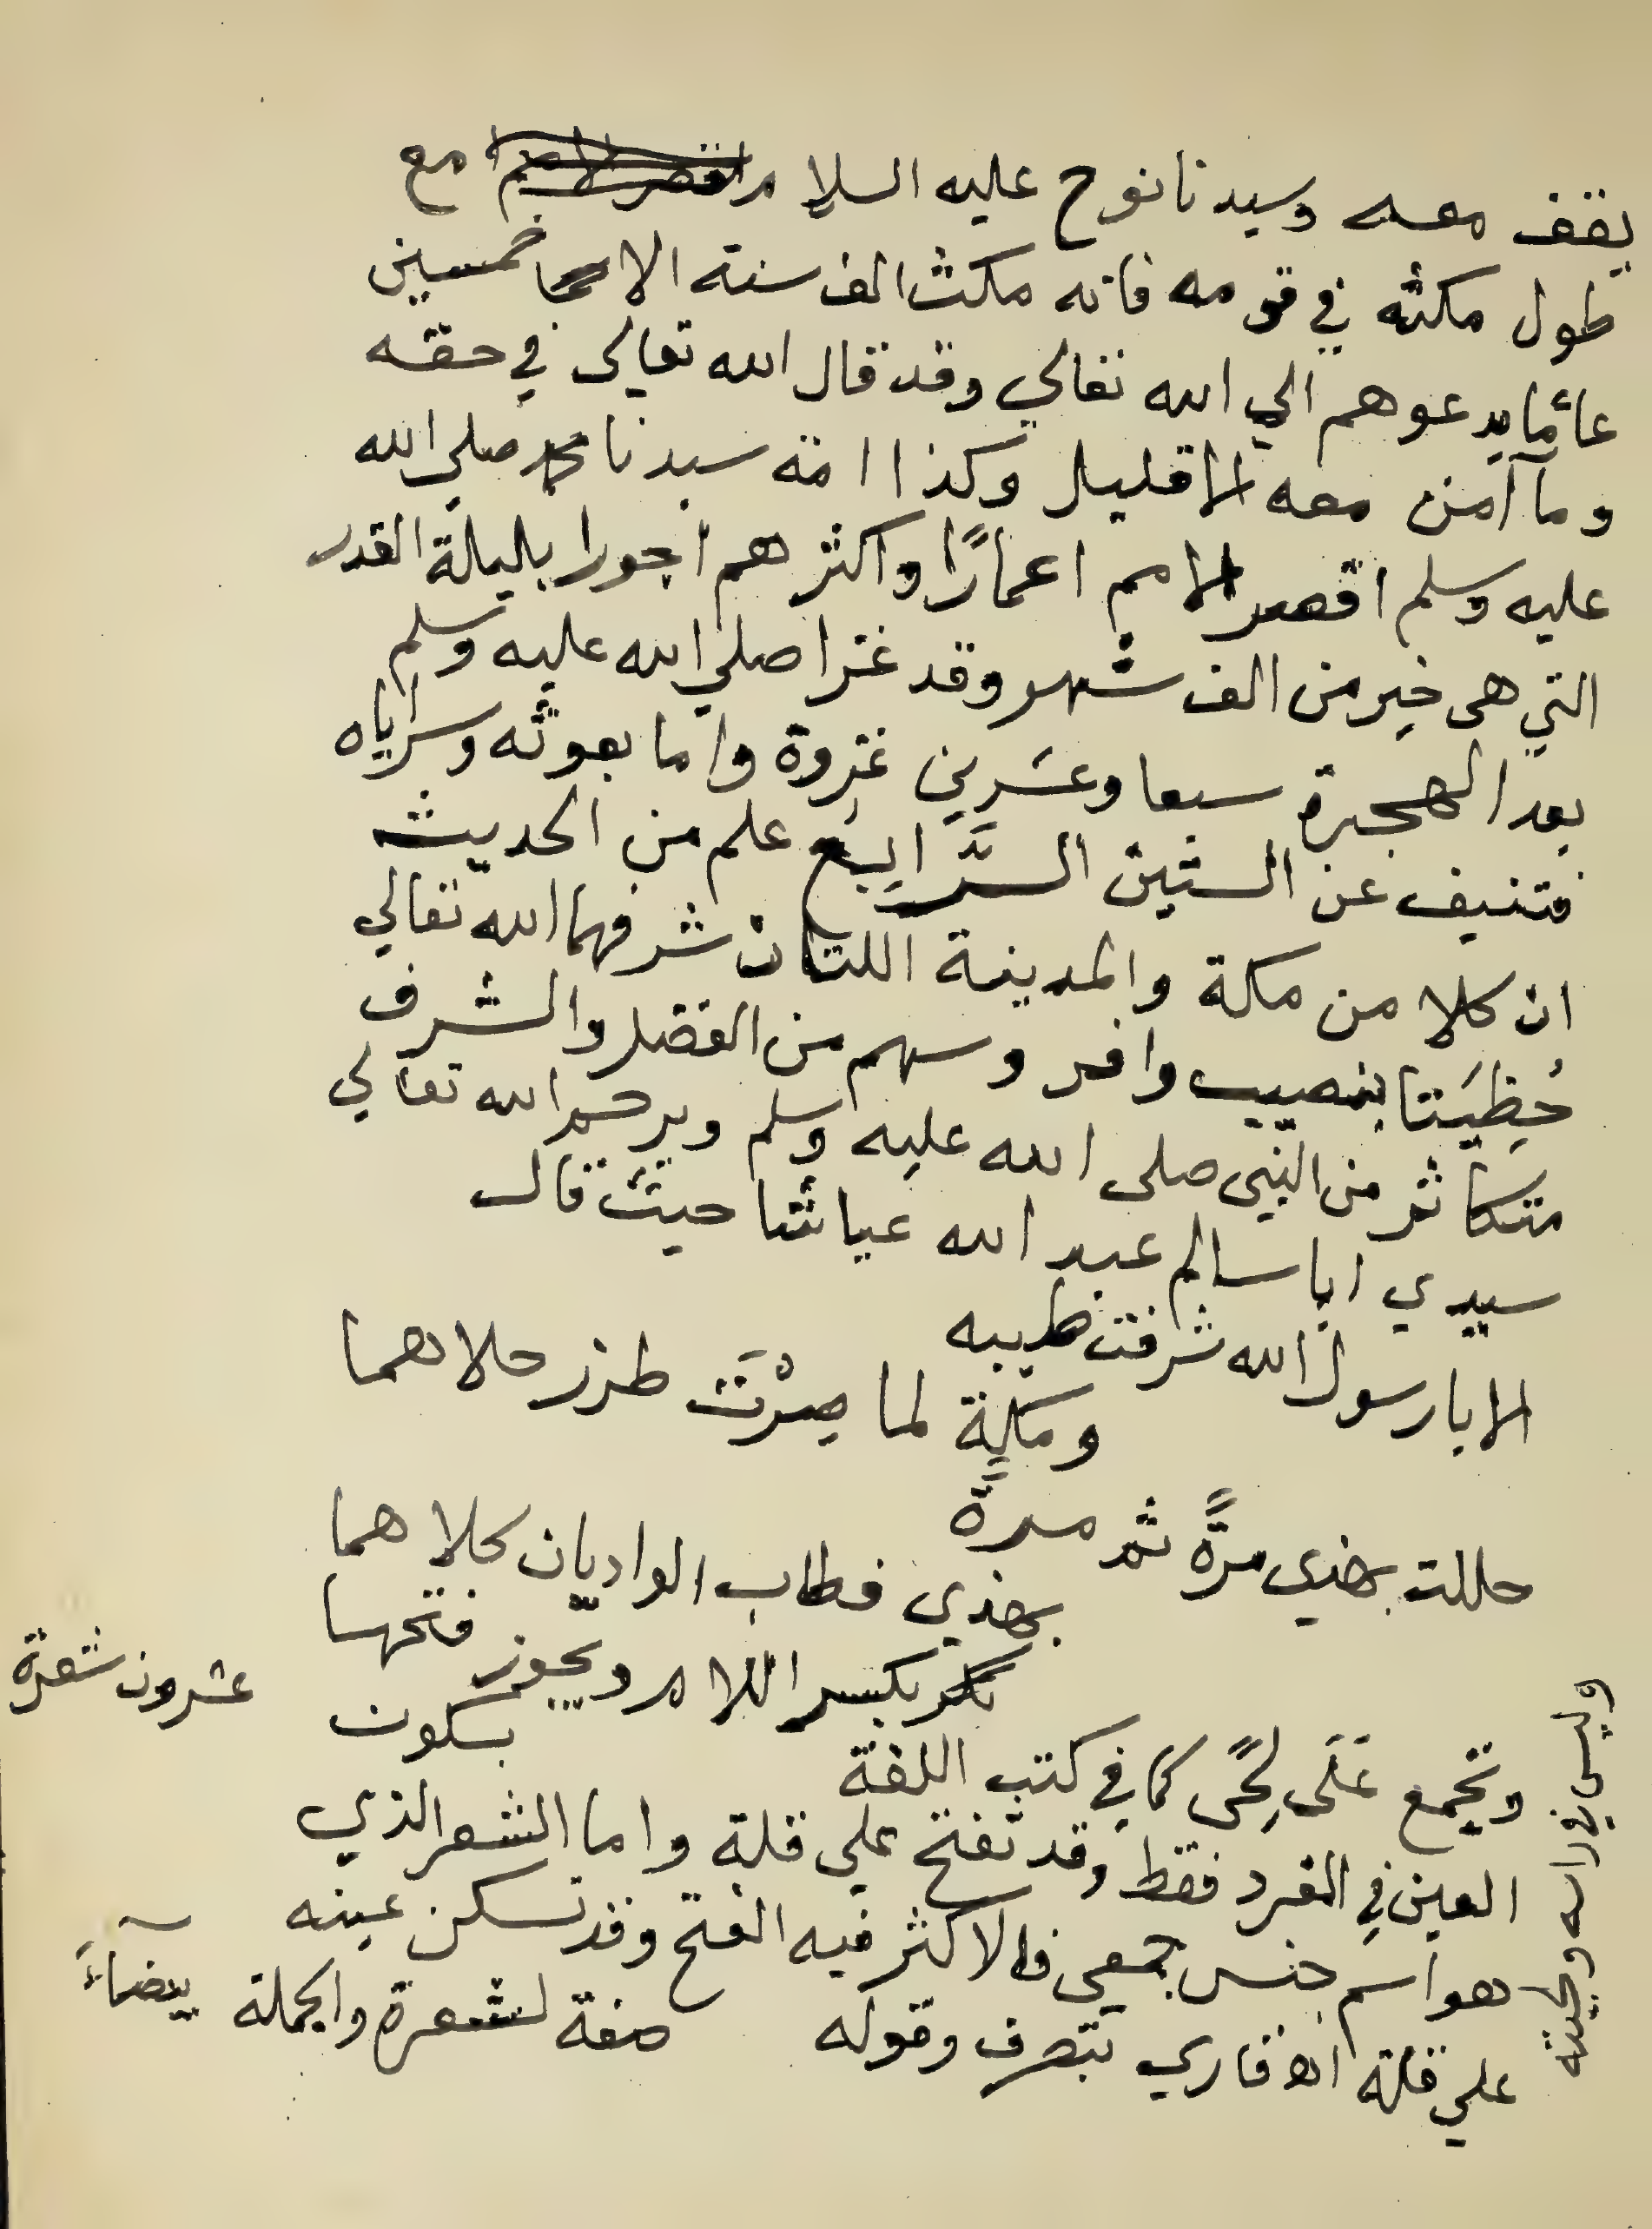 يقف معه وسيدنا نوح عليه السلام اقصر الامم مع
طول مكثه في قومه فانه مكث الف سنة الا خمسين
عاما يدعوهم الي الله تعالي وقد قال الله تعالى في حقه
وما آمن معه الا قليل وكذا امة سيدنا محمد صلي الله
عليه وسلم اقصر الامم اعمارًا واكثرهم اجورا بليلة القدر
التي هى خير من الف شهر وقد غزا صلي الله عليه وسلم
بعد الهجرة سبعا وعشرين غزوة واما بعوثه وسراياه
فتنيف عن الستين السَّرابع علم من الحديث
ان كلا من مكة والمدينة اللتان شرفهما الله تعالي
حُظِيَتا بنصيب وافر وسهم من الفضل والشرف
متكاثر من النبي صلى الله عليه وسلم ويرحم الله تعالي
سيدي ابا سالم عبد الله عياشا حيث قال
الا يا رسول الله شرفت طيبه
ومكة لما صِرْتَ طرز حلاهما
حللت بهذي مرَّةً ثم مرة
بهذي فطاب الواديان كلاهما
بكسر اللام ويجوز فتحها
وتجمع عَلَى لِحًى كما في كتب اللغة
بسكون
العين في المفرد فقط وقد تفتح علي قلة واما الشعر الذي
هو اسم جنس جمعي فالاكثر فيه الفتح وقد تسكن عينه
علي قلة اه فاري بتصرف وقوله
صفة لشعرة والجملة
وليس في راسه ولحيته
عشرون شعرة
بيضاءَ